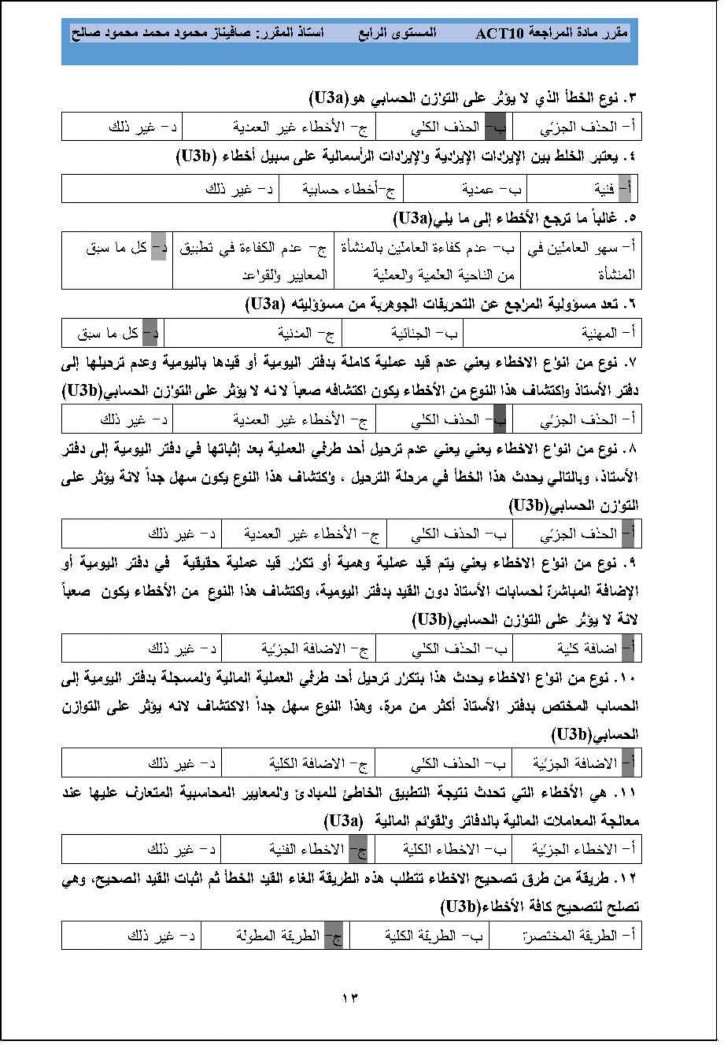 مقرر مادة المراجعة ACT10 المستوى الرابع استاذ المقرر: صافيناز محمود محمد محمود صالح
٣. نوع الخطأ الذي لا يؤثر على التوازن الحسابي هو(U3a)
أ- الحذف الجزئي ب- الحذف الكلي ج- الأخطاء غير العمدية د- غير ذلك
٤. يعتبر الخلط بين الإيرادات الإيرادية والإيرادات الرأسمالية على سبيل أخطاء (U3b)
أ- فنية ب- عمدية ج-أخطاء حسابية د- غير ذلك
٥. غالباً ما ترجع الأخطاء إلى ما يلي(U3a)
أ- سهو العاملين في المنشأة ب- عدم كفاءة العاملين بالمنشأة من الناحية العلمية والعملية ج- عدم الكفاءة في تطبيق المعايير والقواعد د- كل ما سبق
٦. تعد مسؤولية المراجع عن التحريفات الجوهرية من مسؤوليته (U3a)
أ- المهنية ب- الجنائية ج- المدنية د- كل ما سبق
٧. نوع من انواع الاخطاء يعني عدم قيد عملية كاملة بدفتر اليومية أو قيدها باليومية وعدم ترحيلها إلى
دفتر الأستاذ واكتشاف هذا النوع من الأخطاء يكون اكتشافه صعباً لا نه لا يؤثر على التوازن الحسابي(U3b)
أ- الحذف الجزئي ب- الحذف الكلي ج- الأخطاء غير العمدية د- غير ذلك
٨. نوع من انواع الاخطاء يعني يعني عدم ترحيل أحد طرفي العملية بعد إثباتها في دفتر اليومية إلى دفتر
الأستاذ، وبالتالي يحدث هذا الخطأ في مرحلة الترحيل ، واكتشاف هذا النوع يكون سهل جداً لانة يؤثر على
التوازن الحسابي(U3b)
أ- الحذف الجزئي ب- الحذف الكلي ج- الأخطاء غير العمدية د- غير ذلك
٩. نوع من انواع الاخطاء يعني يتم قيد عملية وهمية أو تكرار قيد عملية حقيقية في دفتر اليومية أو
الإضافة المباشرة لحسابات الأستاذ دون القيد بدفتر اليومية، واكتشاف هذا النوع من الأخطاء يكون صعباً
لانة لا يؤثر على التوازن الحسابي(U3b)
أ- اضافة كلية ب- الحذف الكلي ج- الاضافة الجزئية د- غير ذلك
١٠. نوع من انواع الاخطاء يحدث هذا بتكرار ترحيل أحد طرفي العملية المالية والمسجلة بدفتر اليومية إلى
الحساب المختص بدفتر الأستاذ أكثر من مرة، وهذا النوع سهل جداً الاكتشاف لانه يؤثر على التوازن
الحسابي(U3b)
أ- الاضافة الجزئية ب- الحذف الكلي ج- الاضافة الكلية د- غير ذلك
١١. هي الأخطاء التي تحدث نتيجة التطبيق الخاطئ للمبادئ والمعايير المحاسبية المتعارف عليها عند
معالجة المعاملات المالية بالدفاتر والقوائم المالية (U3a)
أ- الاخطاء الجزئية ب- الاخطاء الكلية ج- الاخطاء الفنية د- غير ذلك
١٢. طريقة من طرق تصحيح الاخطاء تتطلب هذه الطريقة الغاء القيد الخطأ ثم اثبات القيد الصحيح، وهي
تصلح لتصحيح كافة الأخطاء(U3b)
أ- الطريقة المختصرة ب- الطريقة الكلية ج- الطريقة المطولة د- غير ذلك
١٣